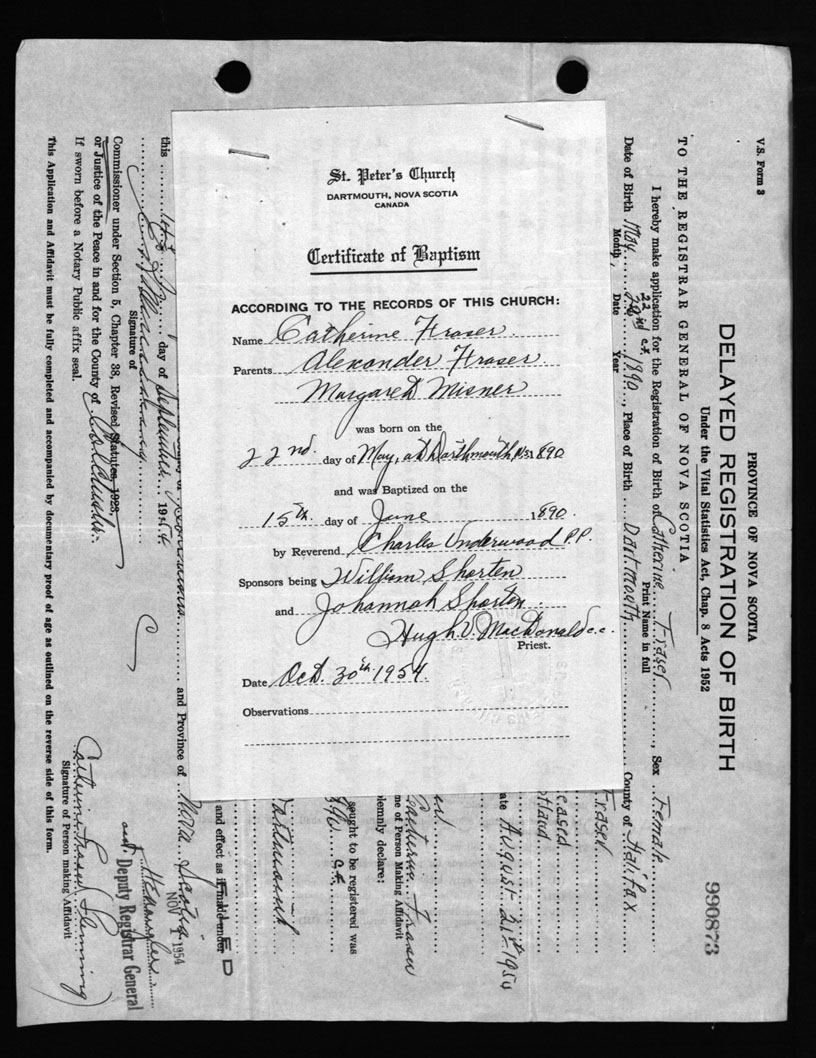 St. Peter's Church
DARTMOUTH, NOVA SCOTIA
CANADA
Certificate of Baptism
ACCORDING TO THE RECORDS OF THIS CHURCH:
Name Catherine Fraser
Parents Alexander Fraser
Margaret Misner
was born on the
22nd. day of May, at Dartmouth, N.S. 1890
and was Baptized on the
15th. day of June 1890.
by Reverend Charles Underwood P.P.
Sponsors being William Shorten
and Johannah Shorten
Hugh D. MacDonald c.c.
Priest.
Date Oct. 30th 1954.
Observations
V.S. Form 3
PROVINCE OF NOVA SCOTIA
DELAYED REGISTRATION OF BIRTH
990873
Under the Vital Statistics Act, Chap. 8 Acts 1952
TO THE REGISTRAR GENERAL OF NOVA SCOTIA
I hereby make application for the Registration of Birth of Catherine Fraser, Sex Female
Print Name in full
Date of Birth May 22nd 1890, Place of Birth Dartmouth County of Halifax
Month, Date Year
Fraser
ate August 31st 1954
Catherine Fraser
me of Person Making Affidavit
olemnly declare:
sought to be registered was
Dartmouth
and effect as if made under
FILED
and Province of Nova Scotia
this day of September 1954
NOV 1954
Signature of
Deputy Registrar General
Commissioner under Section 5, Chapter 38, Revised Statutes, 1923,
or Justice of the Peace in and for the County of Colchester.
If sworn before a Notary Public affix seal.
Catherine Fraser Fleming
Signature of Person making Affidavit
This Application and Affidavit must be fully completed and accompanied by documentary proof of age as outlined on the reverse side of this form.